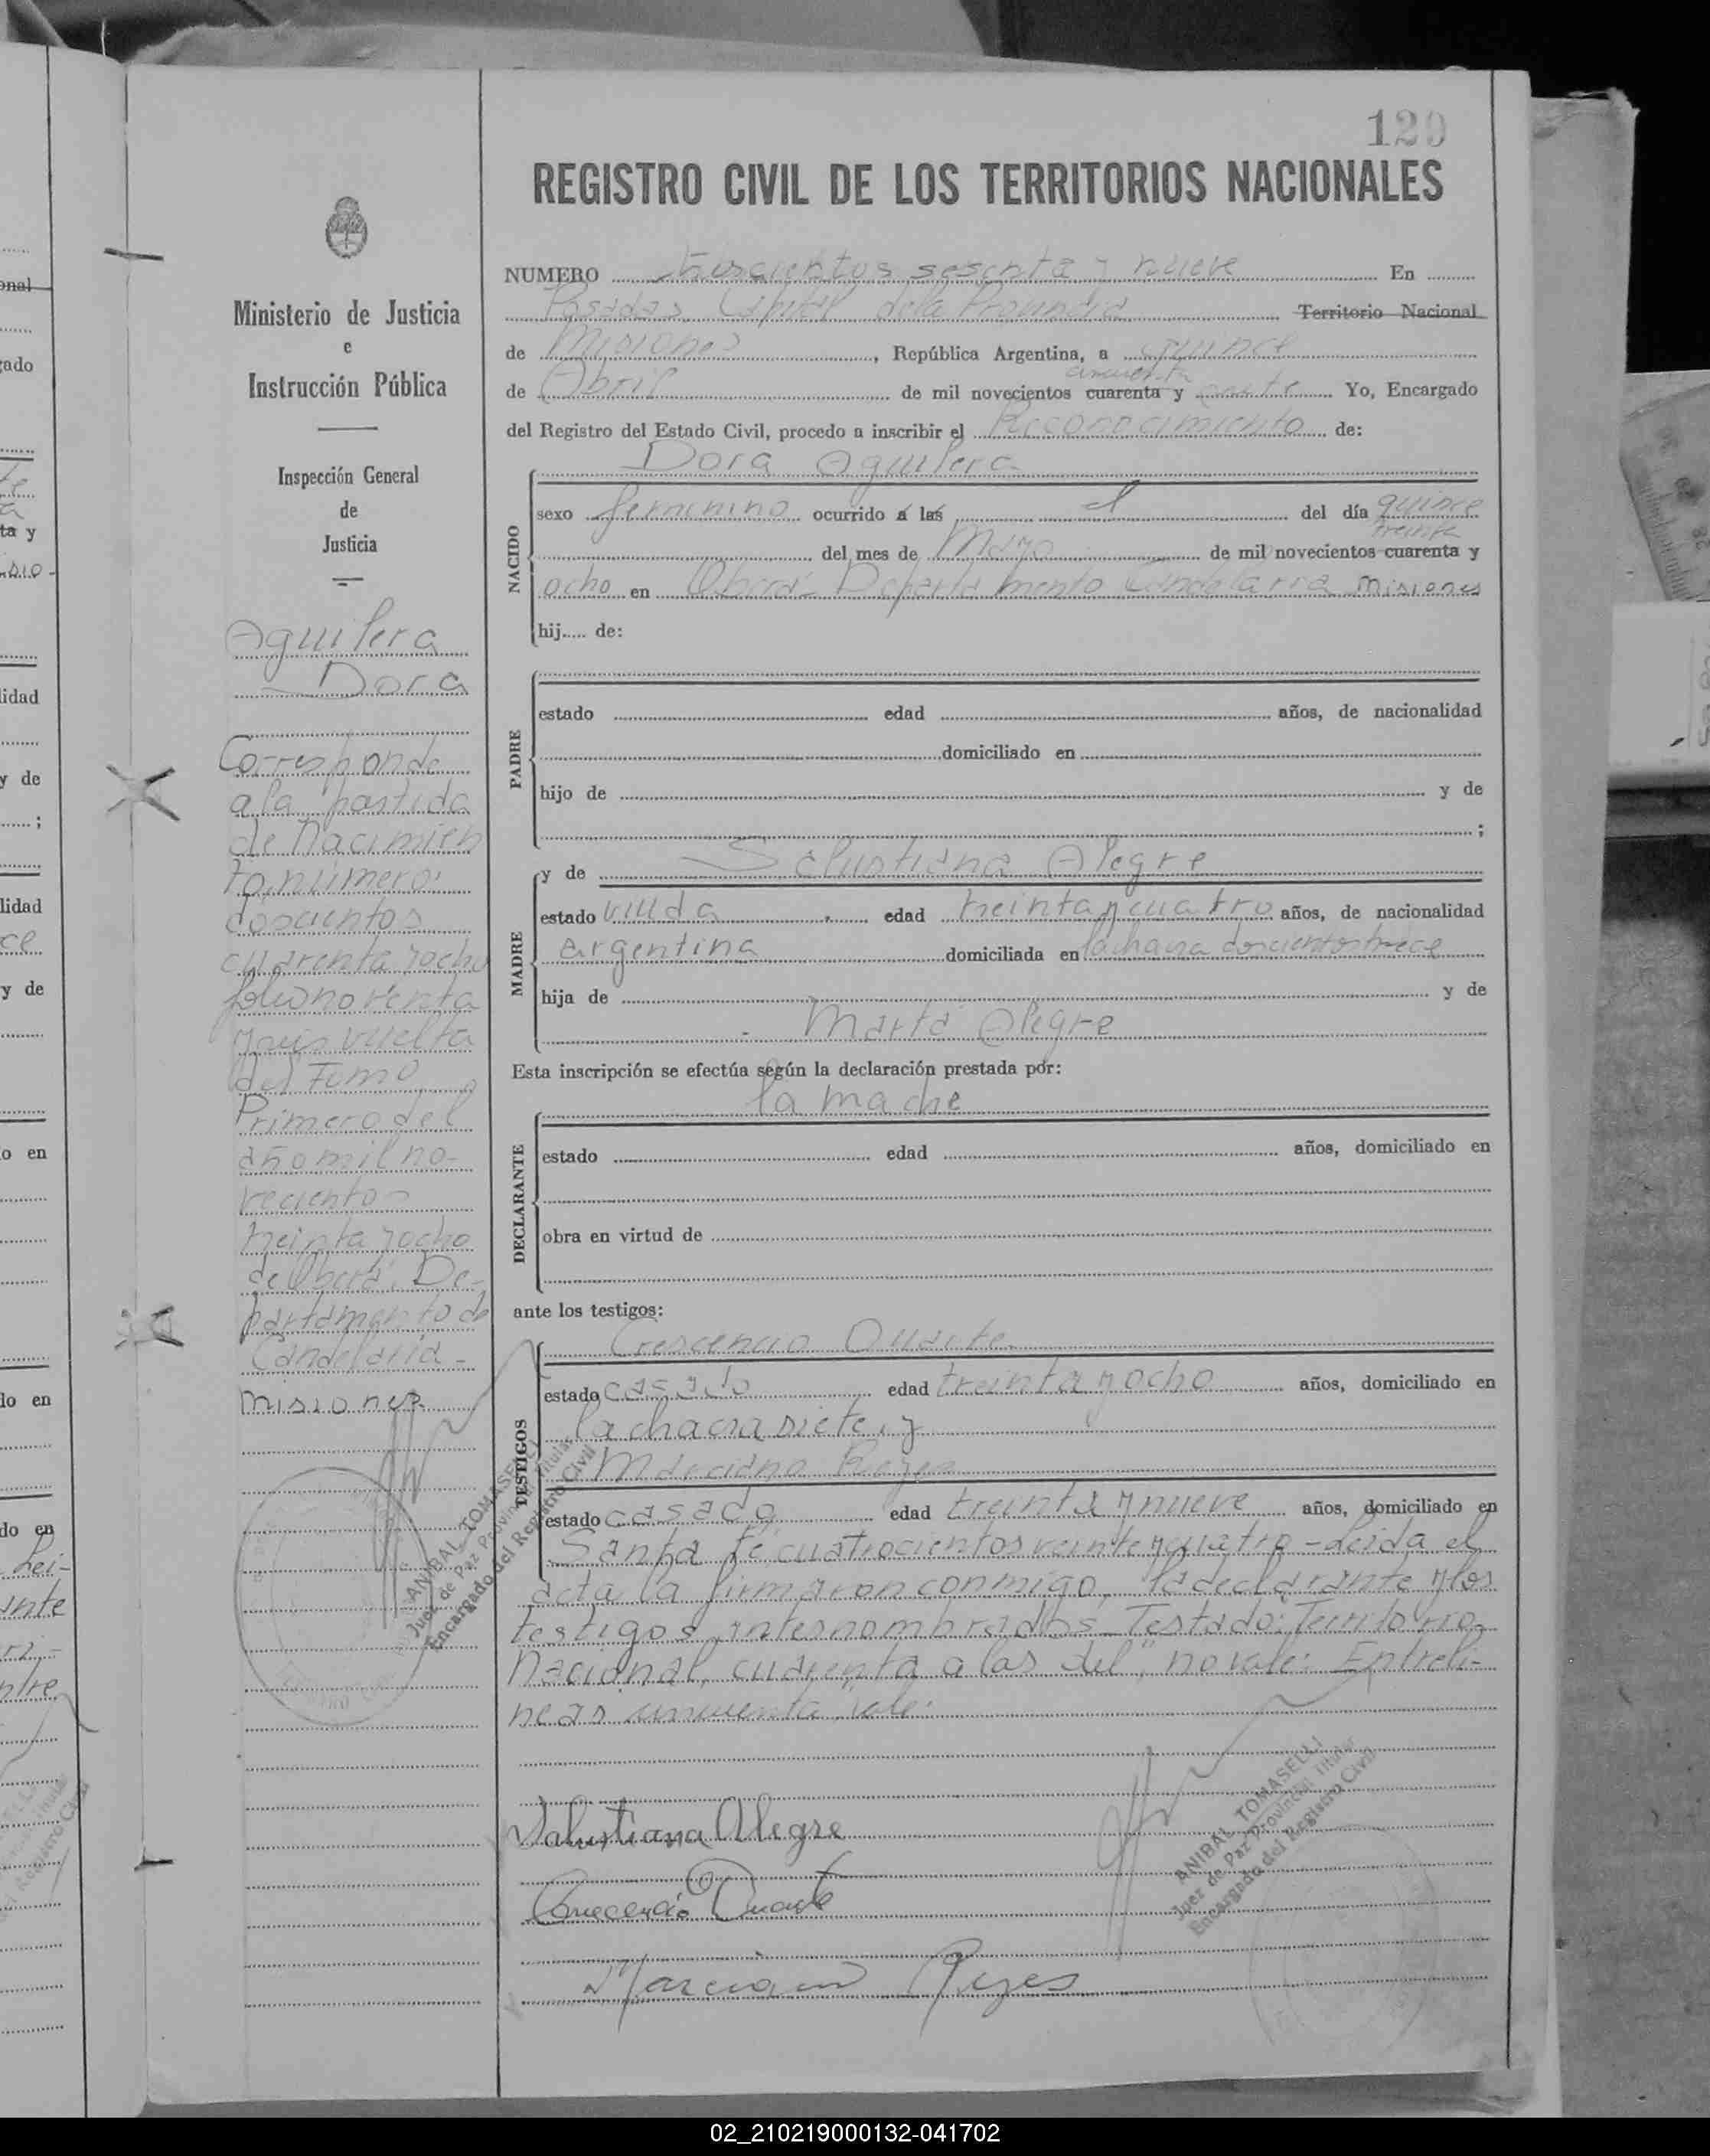 120
REGISTRO CIVIL DE LOS TERRITORIOS NACIONALES
Ministerio de Justicia
e
Instrucción Pública
Inspección General
de
Justicia
Aguilera
Dora
Corresponde
a la partida
de Nacimien
to número
doscientos
cuarenta y ocho
folio noventa
vuelta
del Tomo
Primero del
año mil no-
vecientos
treinta y ocho
de Oberá. De-
partamento de
Candelaria -
Misiones
ANIBAL TOMASELLI
Juez de Paz Provincial Titular
Encargado del Registro Civil
NUMERO Trescientos sesenta y nueve En
Posadas Capital de la Provincia Territorio Nacional
de Misiones, República Argentina, a quince
cincuenta
de Abril de mil novecientos cuarenta y Yo, Encargado
del Registro del Estado Civil, procedo a inscribir el Reconocimiento de:
Dora Aguilera
NACIDO
sexo femenino ocurrido a las el del día quince
treinta
del mes de Mayo de mil novecientos cuarenta y
ocho en Oberá Departamento Candelaria Misiones
hij..... de:
PADRE
estado edad años, de nacionalidad
domiciliado en
hijo de y de
;
MADRE
y de Salustiana Alegre
estado viuda edad treinta y cuatro años, de nacionalidad
argentina domiciliada en la chacra doscientos trece
hija de y de
Marta Alegre
Esta inscripción se efectúa según la declaración prestada por:
la madre
DECLARANTE
estado edad años, domiciliado en
obra en virtud de
ante los testigos:
TESTIGOS
Crescencio Duarte
estado casado edad treinta y ocho años, domiciliado en
la chacra siete, y
Marciano Reyes
estado casado edad treinta y nueve años, domiciliado en
Santa Fe cuatrocientos veinte y cuatro - Leida el
acta la firmaron conmigo, la declarante y los
testigos antesnombrados - Testado: Territorio
Nacional, cuarenta a las del", no vale: Entreli-
neas cincuenta, vale.
Salustiana Alegre
Crescencio Duarte
Marciano Reyes
ANIBAL TOMASELLI
Juez de Paz Provincial Titular
Encargado del Registro Civil
02_210219000132-041702